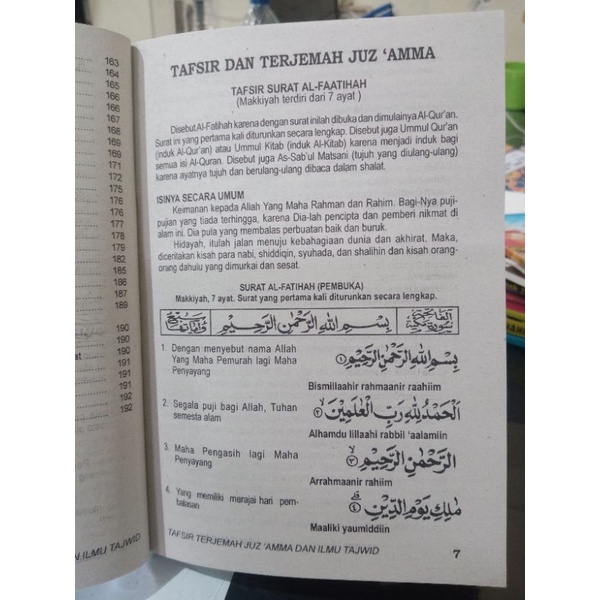 163
164
165
166
166
168
169
169
171
172
175
176
176
177
178
179
182
185
187
189
190
190
190
191
191
192
192
TAFSIR DAN TERJEMAH JUZ 'AMMA
TAFSIR SURAT AL-FAATIHAH
(Makkiyah terdiri dari 7 ayat )
Disebut Al-Fatihah karena dengan surat inilah dibuka dan dimulainya Al-Qur'an.
Surat ini yang pertama kali diturunkan secara lengkap. Disebut juga Ummul Qur'an
(induk Al-Qur'an) atau Ummul Kitab (induk Al-Kitab) karena menjadi induk bagi
semua isi Al-Quran. Disebut juga As-Sab'ul Matsani (tujuh yang diulang-ulang)
karena ayatnya tujuh dan berulang-ulang dibaca dalam shalat.
ISINYA SECARA UMUM
Keimanan kepada Allah Yang Maha Rahman dan Rahim. Bagi-Nya puji-
pujian yang tiada terhingga, karena Dia-lah pencipta dan pemberi nikmat di
alam ini. Dia pula yang membalas perbuatan baik dan buruk.
Hidayah, itulah jalan menuju kebahagiaan dunia dan akhirat. Maka,
diceritakan kisah para nabi, shiddiqin, syuhada, dan shalihin dan kisah orang-
orang dahulu yang dimurkai dan sesat.
SURAT AL-FATIHAH (PEMBUKA)
Makkiyah, 7 ayat. Surat yang pertama kali diturunkan secara lengkap.
بِسْمِ اللهِ الرَّحْمٰنِ الرَّحِيْمِ
1. Dengan menyebut nama Allah
Yang Maha Pemurah lagi Maha
Penyayang
بِسْمِ اللهِ الرَّحْمٰنِ الرَّحِيْمِ ﴿١﴾
Bismillaahir rahmaanir raahiim
2. Segala puji bagi Allah, Tuhan
semesta alam
اَلْحَمْدُ لِلّٰهِ رَبِّ الْعٰلَمِيْنَ ﴿٢﴾
Alhamdu lillaahi rabbil 'aalamiin
3. Maha Pengasih lagi Maha
Penyayang
الرَّحْمٰنِ الرَّحِيْمِ ﴿٣﴾
Arrahmaanir rahiim
4. Yang memiliki merajai hari pem-
balasan
مٰلِكِ يَوْمِ الدِّيْنِ ﴿٤﴾
Maaliki yaumiddiin
TAFSIR TERJEMAH JUZ 'AMMA DAN ILMU TAJWID
7
AN ILMU TAJWID